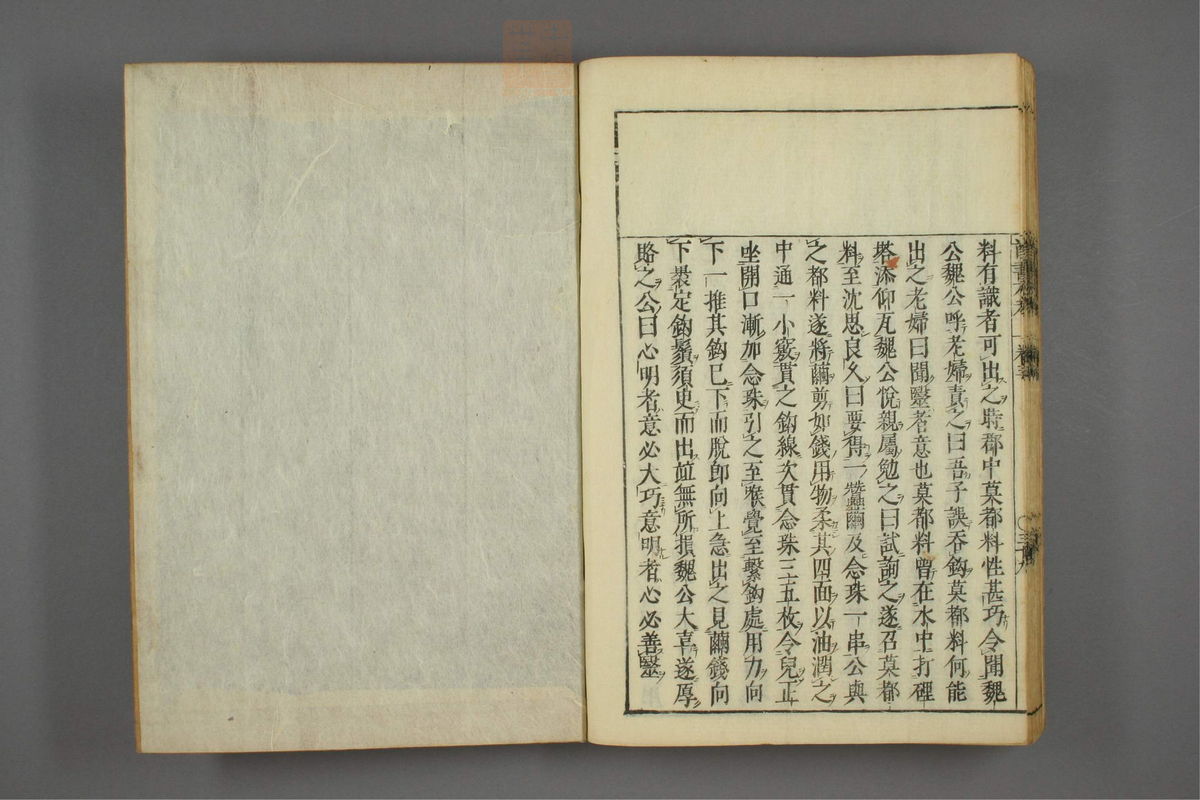 料有識者可出之時郡中莫都料性甚巧令聞魏
公魏公呼老婦責之曰吾子誤吞鈎莫都料何能
出之老婦曰聞毉者意也莫都料曽在水中打碑
塔添仰瓦魏公悅親屬勉之曰試詢之遂召莫都
料至沈思良久曰要得一蠶繭及念珠一串公與
之都料遂將繭剪如錢用物柔其四面以油潤之
中通一小竅貫之鈎線次貫念珠三五枚令兒正
坐開口漸加念珠引之至喉覺至繫鈎處用力向
下一推其鈎已下而脫卽向上急出之見繭錢向
下裹定鈎鬚須臾而出並無所損魏公大喜遂厚
賂之公曰心明者意必大巧意明者心必善毉